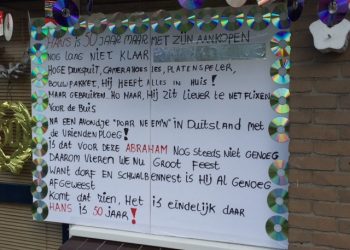 HANS IS 50 JAAR MAAR MET ZIJN AANKOPEN
NOG LANG NIET KLAAR
HOGE DRUKSPUIT, CAMERAHOESJES, PLATENSPELER,
BOUWPAKKET, HIJ HEEFT ALLES IN HUIS!
MAAR GEBRUIKEN. HO MAAR, HIJ ZIT LIEVER TE NETFLIXEN
VOOR DE BUIS
NA EEN AVONDJE "POAR NEEM'N" IN DUITSLAND MET
DE VRIENDENPLOEG!
IS DAT VOOR DEZE ABRAHAM NOG STEEDS NIET GENOEG
DAAROM VIEREN WE NU GROOT FEEST
WANT DORF EN SCHWALBENNEST IS HIJ AL GENOEG
AFGEWEEST
KOMT DAT ZIEN, HET IS EINDELIJK DAAR
HANS IS 50 JAAR!